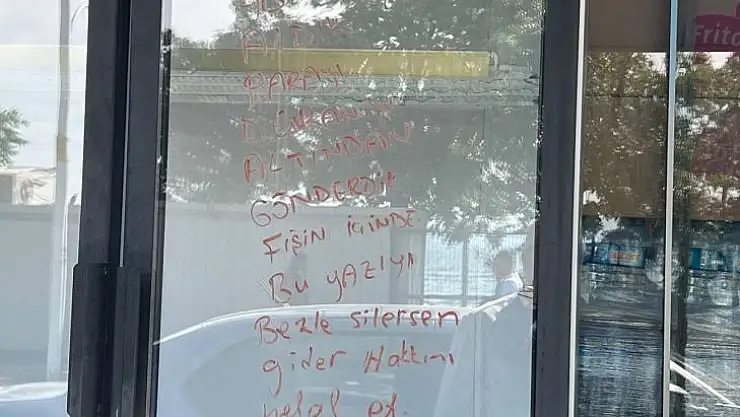 ALDIK
PARAYI
DÜKANIN
ALTINDAN
GÖNDERDİK
FİŞİN İÇİNDE
Bu YAZIYI
Bezle silersen
gider Hakkını
helal et.
Frito